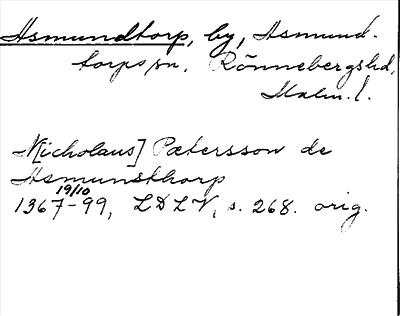 Asmundtorp, by, Asmund-
torps sn, Rönnebergs hd,
Malm. l.
N[icholaus] Pætersson de
Asmunsthorp
19/10
1367-99, LDLV, s. 268. orig.